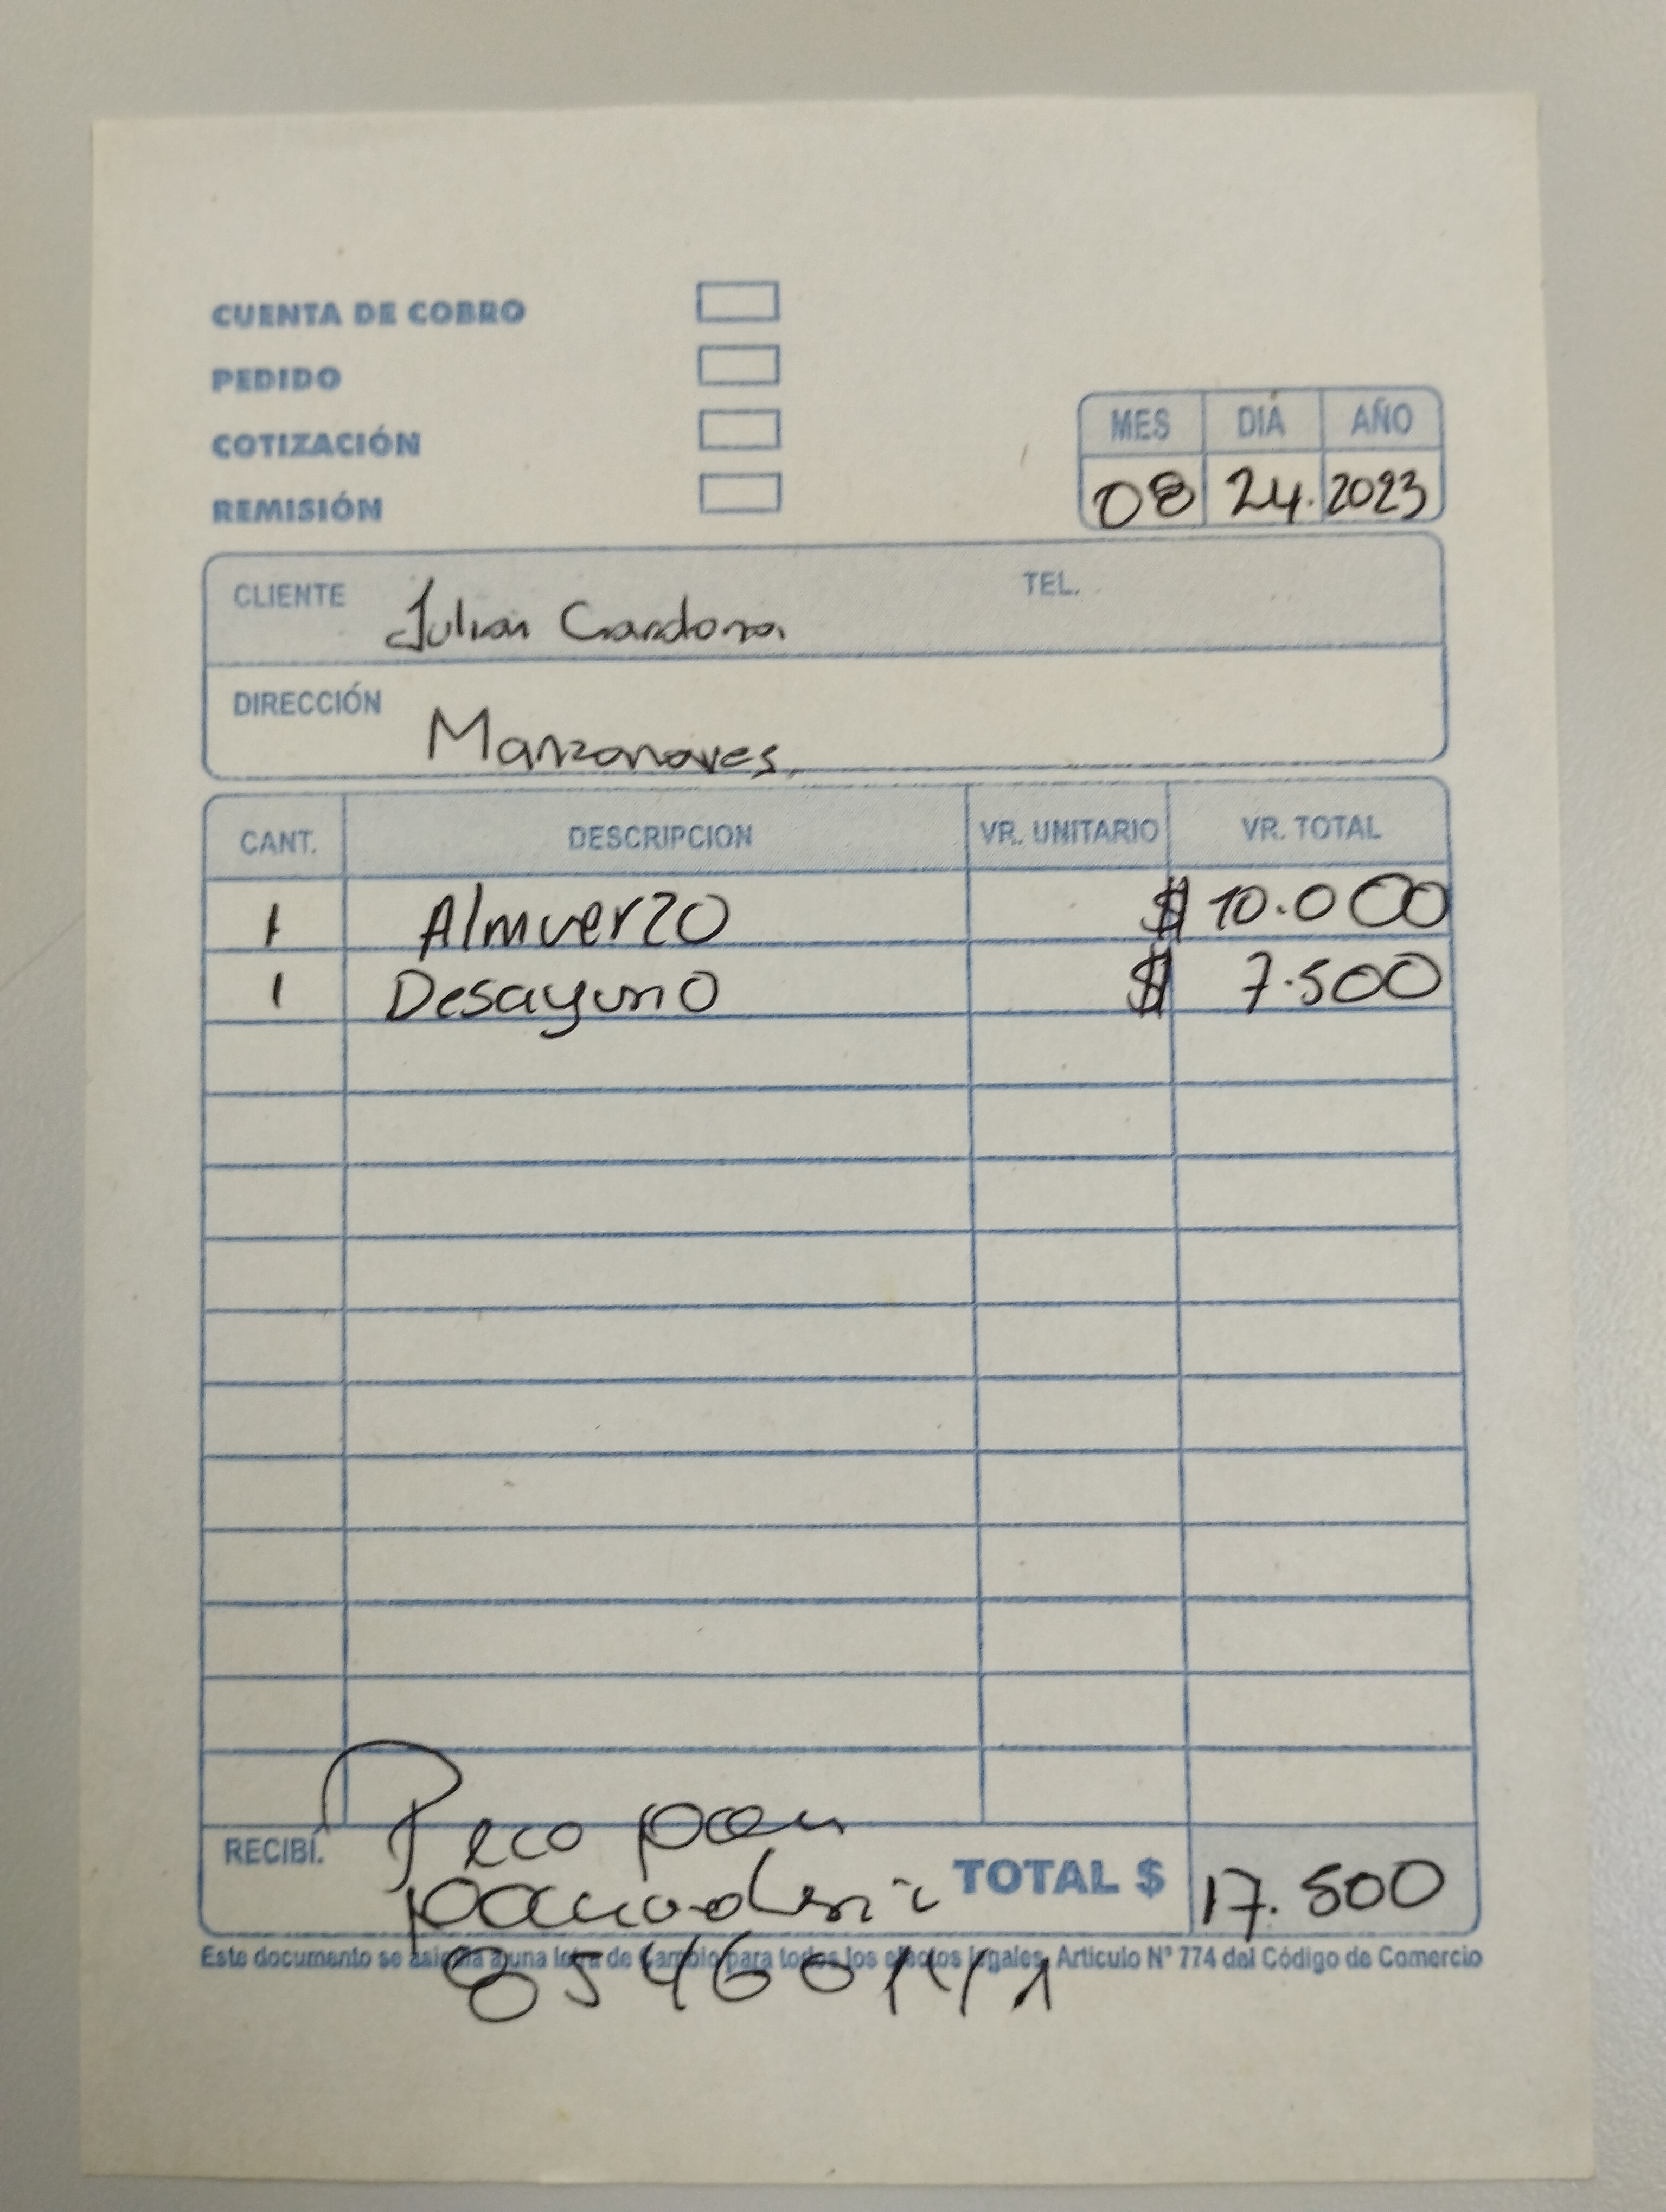 CUENTA DE COBRO
PEDIDO
COTIZACIÓN
REMISIÓN
MES DIA AÑO
08 24. 2023
CLIENTE Julian Cardona TEL.
DIRECCIÓN Manzanares
CANT. DESCRIPCION VR. UNITARIO VR. TOTAL
1 Almuerzo $ 10.000
1 Desayuno $ 7.500
RECIBÍ. Peco pan
TOTAL $ 17.500
Este documento se asimila a una letra de Cambio para todos los efectos legales, Articulo Nº 774 del Código de Comercio